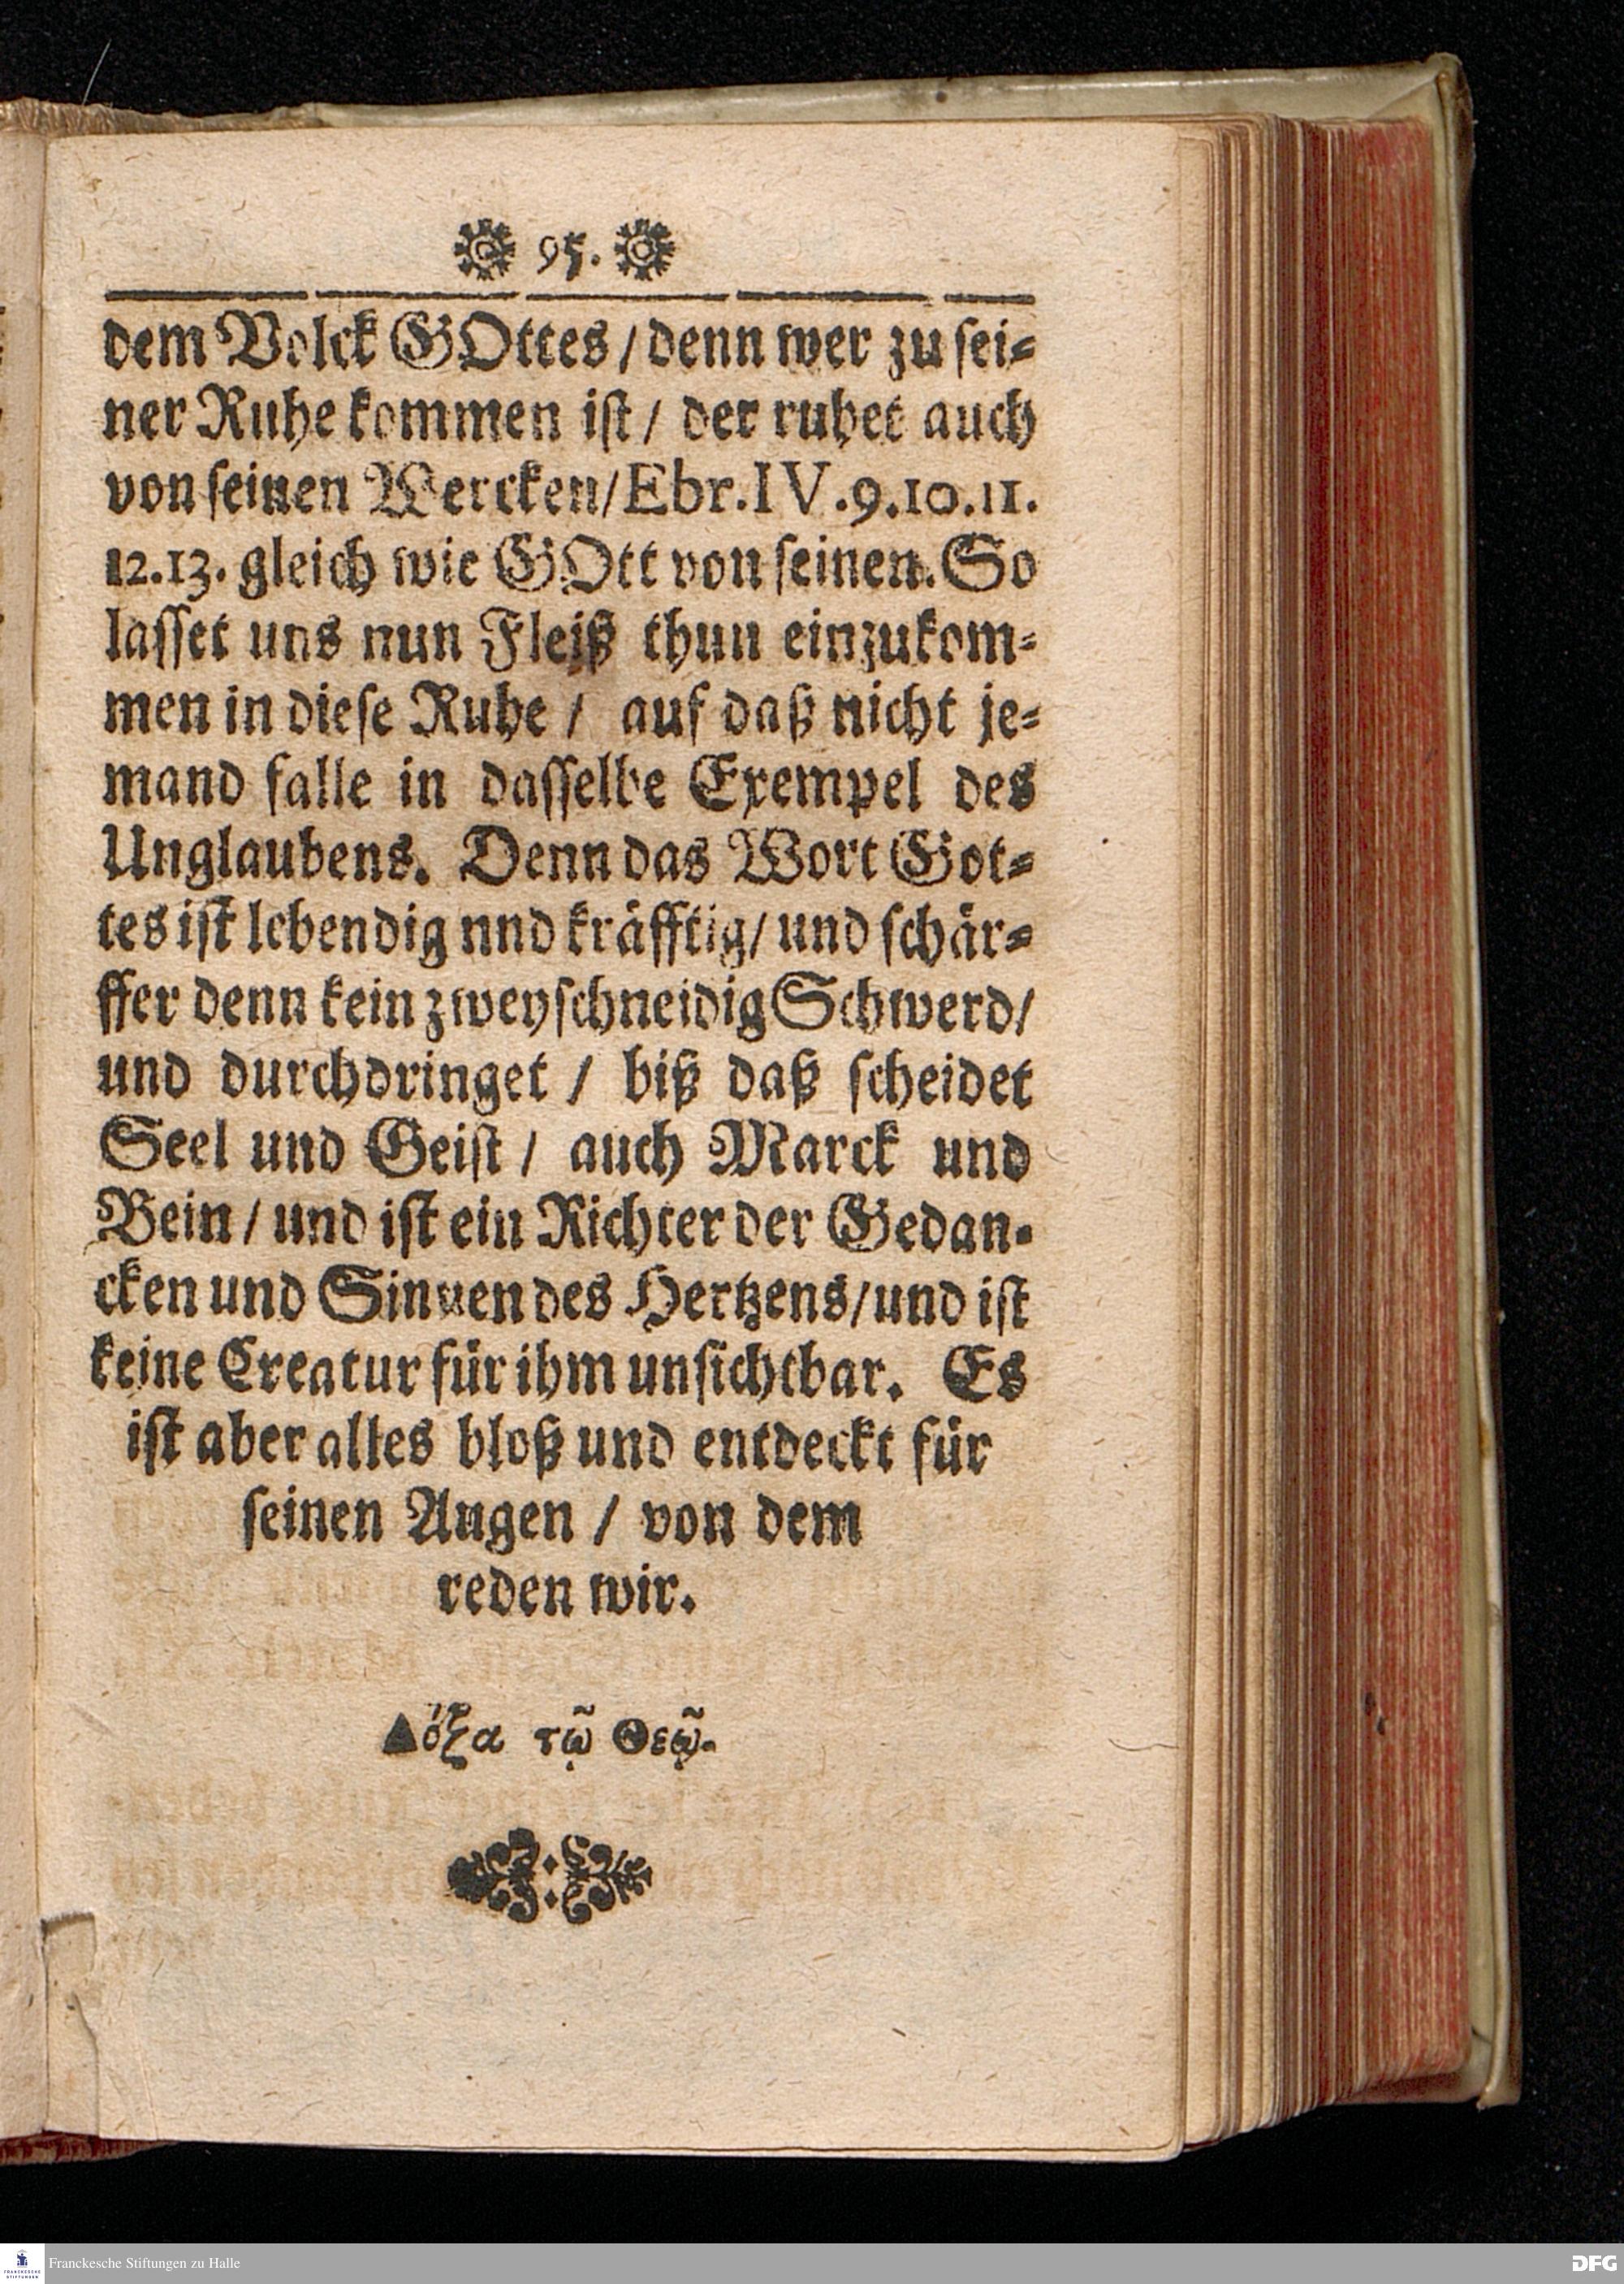 95.
dem Volck GOttes / denn wer zu sei-
ner Ruhe kommen ist / der ruhet auch
von seinen Wercken / Ebr. IV. 9. 10. 11.
12. 13. gleich wie GOtt von seinen. So
lasset uns nun Fleiß thun einzukom-
men in diese Ruhe / auf daß nicht je-
mand falle in dasselbe Exempel des
Unglaubens. Denn das Wort Got-
tes ist lebendig nnd kräfftig / und schär-
ffer denn kein zweyschneidig Schwerd /
und durchdringet / biß daß scheidet
Seel und Geist / auch Marck und
Bein / und ist ein Richter der Gedan-
cken und Sinuen des Hertzens / und ist
keine Creatur für ihm unsichtbar. Es
ist aber alles bloß und entdeckt für
seinen Augen / von dem
reden wir.
Δόξα τῷ Θεῷ.
FRANCKESCHE STIFTUNGEN
Franckesche Stiftungen zu Halle
DFG